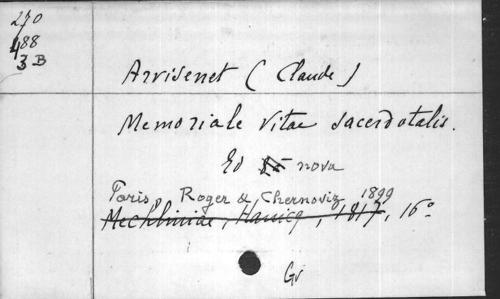 270
488
3 B
Arvisenet (Claude)
Memoriale vitae sacerdotalis.
Ed nova
Paris, Roger & Chernoviz 1899
Mechliniae, Hanicq, 1817, 16°
Gr